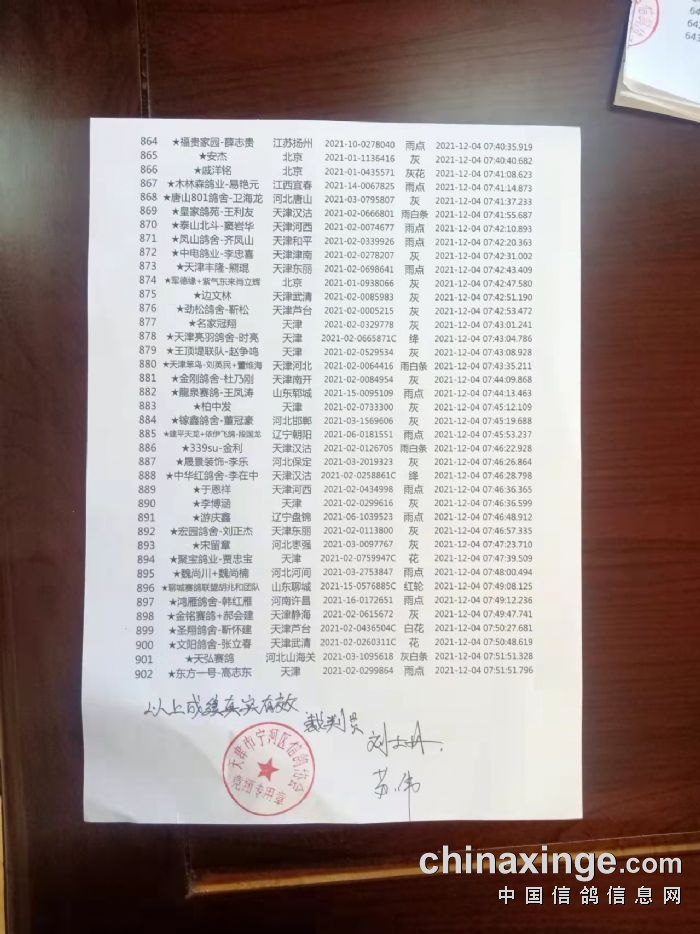 864 ★福贵家园-薛志贵 江苏扬州 2021-10-0278040 雨点 2021-12-04 07:40:35.919
865 ★安杰 北京 2021-01-1136416 灰 2021-12-04 07:40:40.682
866 ★戚洋铭 北京 2021-01-0435571 灰花 2021-12-04 07:41:08.623
867 ★木林森鸽业-易艳元 江西宜春 2021-14-0067825 雨点 2021-12-04 07:41:14.873
868 ★唐山801鸽舍-卫海龙 河北唐山 2021-03-0795807 灰 2021-12-04 07:41:37.233
869 ★皇家鸽苑-王利友 天津汉沽 2021-02-0666801 雨白条 2021-12-04 07:41:55.687
870 ★泰山北斗-窦岩华 天津河西 2021-02-0074677 雨点 2021-12-04 07:42:10.893
871 ★凤山鸽舍-齐凤山 天津和平 2021-02-0339926 雨点 2021-12-04 07:42:20.363
872 ★中电鸽业-李忠喜 天津津南 2021-02-0278207 灰 2021-12-04 07:42:31.002
873 ★天津丰隆-熊琨 天津东丽 2021-02-0698641 雨点 2021-12-04 07:42:43.409
874 ★军德缘+紫气东来肖立辉 北京 2021-01-0938066 灰 2021-12-04 07:42:47.580
875 ★边文林 天津武清 2021-02-0085983 灰 2021-12-04 07:42:51.190
876 ★劲松鸽舍-靳松 天津芦台 2021-02-0005215 灰 2021-12-04 07:42:53.472
877 ★名家冠翔 天津 2021-02-0329778 灰 2021-12-04 07:43:01.241
878 ★天津亮羽鸽舍-时亮 天津 2021-02-0665871C 绛 2021-12-04 07:43:04.786
879 ★王顶堤联队-赵争鸣 天津 2021-02-0529534 灰 2021-12-04 07:43:08.928
880 ★天津笨鸟-刘英民+董维海 天津河北 2021-02-0064416 雨白条 2021-12-04 07:43:35.211
881 ★金刚鸽舍-杜乃刚 天津南开 2021-02-0084954 灰 2021-12-04 07:44:09.868
882 ★龍泉赛鸽-王凤涛 山东郓城 2021-15-0095109 雨点 2021-12-04 07:44:13.463
883 ★柏中发 天津 2021-02-0733300 灰 2021-12-04 07:45:12.109
884 ★镓鑫鸽舍-董冠豪 河北邯郸 2021-03-1569606 灰 2021-12-04 07:45:19.688
885 ★建平天龙+依伊飞鸽-陵国龙 辽宁朝阳 2021-06-0181551 雨点 2021-12-04 07:45:53.237
886 ★339su-金利 天津汉沽 2021-02-0126705 雨白条 2021-12-04 07:46:22.928
887 ★晟景装饰-李乐 河北保定 2021-03-2019323 灰 2021-12-04 07:46:26.864
888 ★中华红鸽舍-李在中 天津汉沽 2021-02-0258861C 绛 2021-12-04 07:46:28.798
889 ★于恩祥 天津河西 2021-02-0434998 雨点 2021-12-04 07:46:36.365
890 ★李博涵 天津 2021-02-0299616 灰 2021-12-04 07:46:36.599
891 ★游庆鑫 辽宁盘锦 2021-06-1039523 雨点 2021-12-04 07:46:48.912
892 ★宏园鸽舍-刘正杰 天津东丽 2021-02-0113800 灰 2021-12-04 07:46:57.335
893 ★宋留章 河北枣强 2021-03-0097767 灰 2021-12-04 07:47:23.710
894 ★聚宝鸽业-贾忠宝 天津 2021-02-0759947C 花 2021-12-04 07:47:39.509
895 ★魏尚川+魏尚楠 河北河间 2021-03-2753847 雨点 2021-12-04 07:48:00.494
896 ★聊城赛鸽联盟胡兆和团队 山东聊城 2021-15-0576885C 红轮 2021-12-04 07:49:08.125
897 ★鸿雁鸽舍-韩红雁 河南许昌 2021-16-0172651 雨点 2021-12-04 07:49:12.236
898 ★金铭赛鸽+郝会建 天津静海 2021-02-0615672 灰 2021-12-04 07:49:47.741
899 ★圣翔鸽舍-靳怀建 天津芦台 2021-02-0436504C 白花 2021-12-04 07:50:27.681
900 ★文阳鸽舍-张立春 天津武清 2021-02-0260311C 花 2021-12-04 07:50:48.619
901 ★天弘赛鸽 河北山海关 2021-03-1095618 灰白条 2021-12-04 07:51:51.328
902 ★东方一号-高志东 天津 2021-02-0299864 雨点 2021-12-04 07:51:51.796
以上成绩真实有效
裁判员
苏伟
天津市宁河区信鸽协会
竞翔专用章
chinaxinge.com
中国信鸽信息网